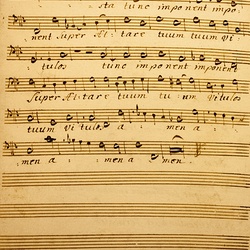 sta tunc imponent impo:
nent super Al: tare tuum tuum vi:
tulos tunc imponent imponent
super Al: tare tuum tuum vitulos
tuum vitulos a men a:
men a: men a men